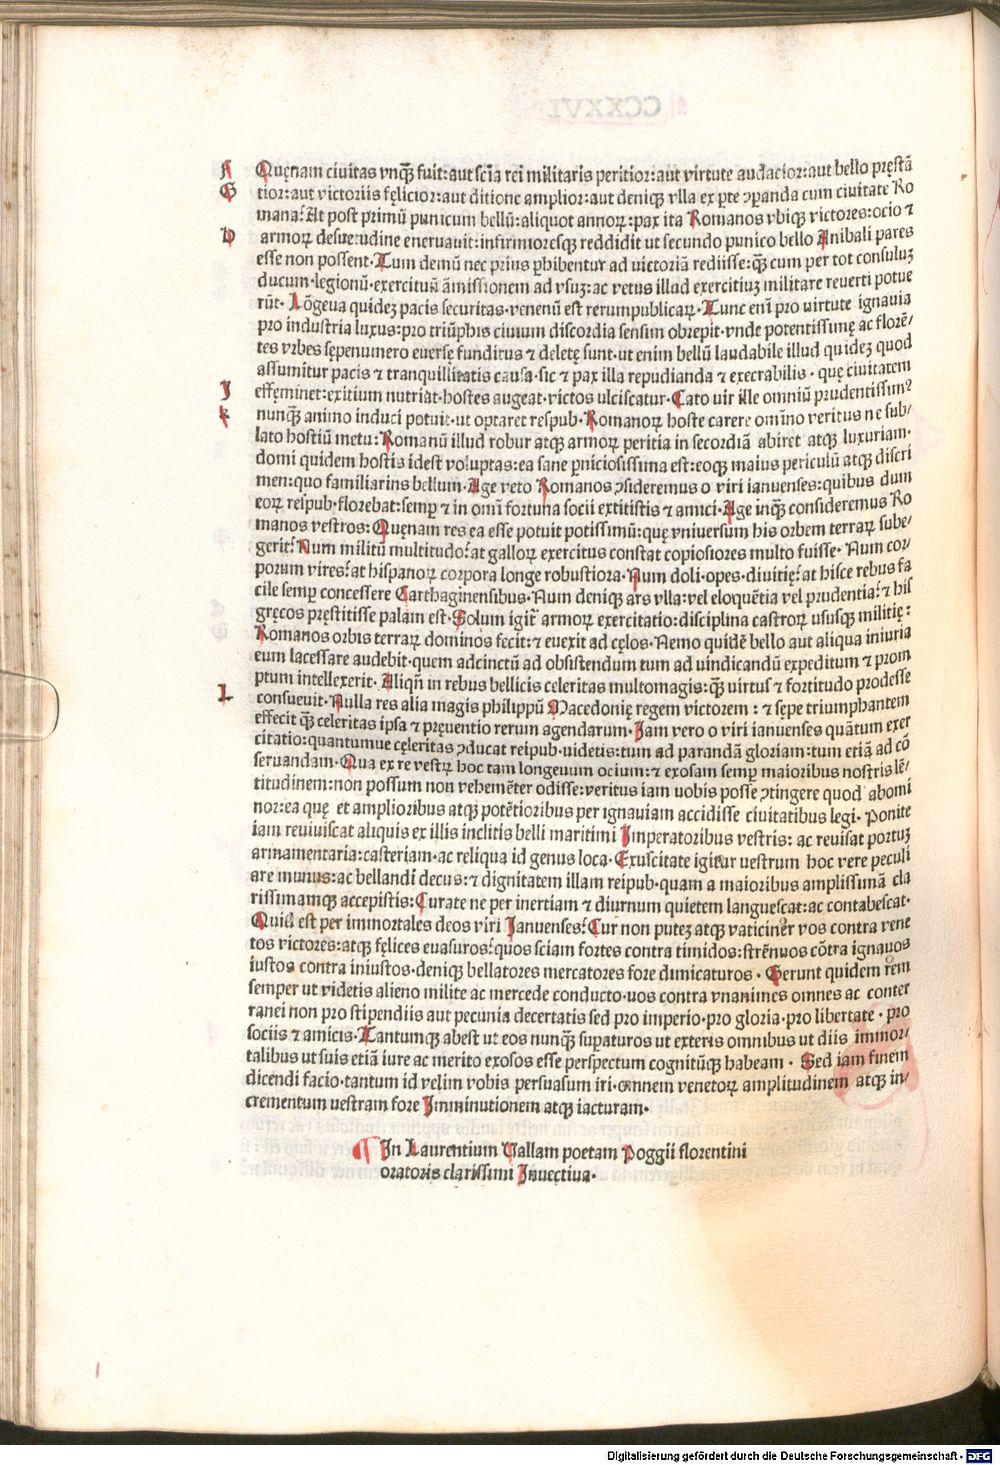 Quęnam ciuitas vnq̄ꝫ fuit: aut scīa rei militaris peritior: aut virtute audacior: aut bello pręstā
tior: aut victoriis fęlicior: aut ditione amplior: aut deniqꝫ vlla ex ꝑte ↄꝑanda cum ciuitate Ro
mana? At post primū punicum bellū: aliquot annoꝝ· pax ita Romanos vbiqꝫ victores: ocio ⁊
armoꝝ desuetudine eneruauit: infirmioresqꝫ reddidit ut secundo punico bello Anibali pares
esse non possent· Tum demū nec prius ꝑhibentur ad victoriā rediisse: q̄ꝫ cum per tot consuluꝫ
ducum· legionū· exercituū āmissionem ad vsuꝫ: ac vetus illud exercitiuꝫ militare reuerti potue
rūt· Lōgeua quideꝫ pacis securitas· venenū est rerumpublicaꝝ· Tunc enī pro uirtute ignauia
pro industria luxus: pro triūphis ciuium discordia sensim obrepit· vnde potentissimę ac florē/
tes vrbes sępenumero euersę funditus ⁊ deletę sunt· ut enim bellū laudabile illud quideꝫ quod
assumitur pacis ⁊ tranquillitatis causa· sic ⁊ pax illa repudianda ⁊ execrabilis· quę ciuitatem
effęminet: exitium nutriat· hostes augeat· victos ulciscatur· Cato uir ille omniū prudentissimꝰ
nunq̄ꝫ animo induci potuit· ut optaret respub· Romanoꝝ hoste carere omīno veritus ne sub/
lato hostiū metu: Romanū illud robur atqꝫ armoꝝ peritia in secordiā abiret atqꝫ luxuriam·
domi quidem hostis idest voluptas: ea sane ꝑniciosissima est: eoqꝫ maius periculū atqꝫ discri
men: quo familiarius bellum· Age veto Romanos ↄsideremus o viri ianuenses: quibus dum
eoꝝ reipub· florebat: semꝑ ⁊ in omī fortuna socii extitistis ⁊ amici· Age inq̄ꝫ consideremus Ro
manos vestros: Quęnam res ea esse potuit potissimū: quę vniuersum his orbem terraꝝ sube/
gerit? Num militū multitudo? at galloꝝ exercitus constat copiosiores multo fuisse· Num cor/
porum vires? at hispanoꝝ corpora longe robustiora· Num doli· opes· diuitię? at hisce rebus fa
cile semꝑ concessere Carthaginensibus· Num deniqꝫ ars vlla: vel eloquētia vel prudentia? ⁊ his
gręcos pręstitisse palam est· Solum igit̄ armoꝝ exercitatio: disciplina castroꝝ ususqꝫ militię:
Romanos orbis terraꝝ dominos fecit: ⁊ euexit ad cęlos· Nemo quidē bello aut aliqua iniuria
eum lacessare audebit· quem adcinctū ad obsistendum tum ad uindicandū expeditum ⁊ prom
ptum intellexerit· Aliqn̄ in rebus bellicis celeritas multomagis: q̄ꝫ virtus ⁊ fortitudo prodesse
consueuit· Nulla res alia magis philippū Macedonię regem victorem: ⁊ sępe triumphantem
effecit q̄ꝫ celeritas ipsa ⁊ pręuentio rerum agendarum· Iam vero o viri ianuenses quātum exer
citatio: quantumue cęleritas ↄducat reipub· uidetis: tum ad parandā gloriam: tum etiā ad cō
seruandam· Qua ex re vestrꝝ hoc tam longeuum ocium: ⁊ exosam semꝑ maioribus nostris lē/
titudinem: non possum non vehemēter odisse: veritus iam uobis posse ↄtingere quod abomi
nor: ea quę et amplioribus atqꝫ potētioribus per ignauiam accidisse ciuitatibus legi· Ponite
iam reuiuiscat aliquis ex illis inclitis belli maritimi Imperatoribus vestris: ac reuisat portuꝫ
armamentaria: casteriam· ac reliqua id genus loca· Exuscitate igitur uestrum hoc vere peculi
are munus: ac bellandi decus: ⁊ dignitatem illam reipub· quam a maioribus amplissimā cla
rissimamqꝫ accepistis: Curate ne per inertiam ⁊ diurnum quietem languescat: ac contabescat·
Quid est per immortales deos viri Ianuenses? Cur non puteꝫ atqꝫ vaticiner vos contra vene
tos victores: atqꝫ fęlices euasuros? quos sciam fortes contra timidos: strēnuos cōtra ignauos
iustos contra iniustos· deniqꝫ bellatores mercatores fore dimicaturos· Gerunt quidem rem
semper ut videtis alieno milite ac mercede conducto· uos contra vnanimes omnes ac conter
ranei non pro stipendiis aut pecunia decertatis sed pro imperio· pro gloria· pro libertate· pro
sociis ⁊ amicis· Tantumqꝫ abest ut eos nunq̄ꝫ supaturos ut exteris omnibus ut diis immor/
talibus ut suis etiā iure ac merito exosos esse perspectum cognitūqꝫ habeam· Sed iam finem
dicendi facio· tantum id velim vobis persuasum iri· omnem venetoꝝ amplitudinem atqꝫ in/
crementum uestram fore Imminutionem atqꝫ iacturam·
¶ In Laurentium Vallam poetam Poggii florentini
oratoris clarissimi Inuectiua·
Digitalisierung gefördert durch die Deutsche Forschungsgemeinschaft - DFG